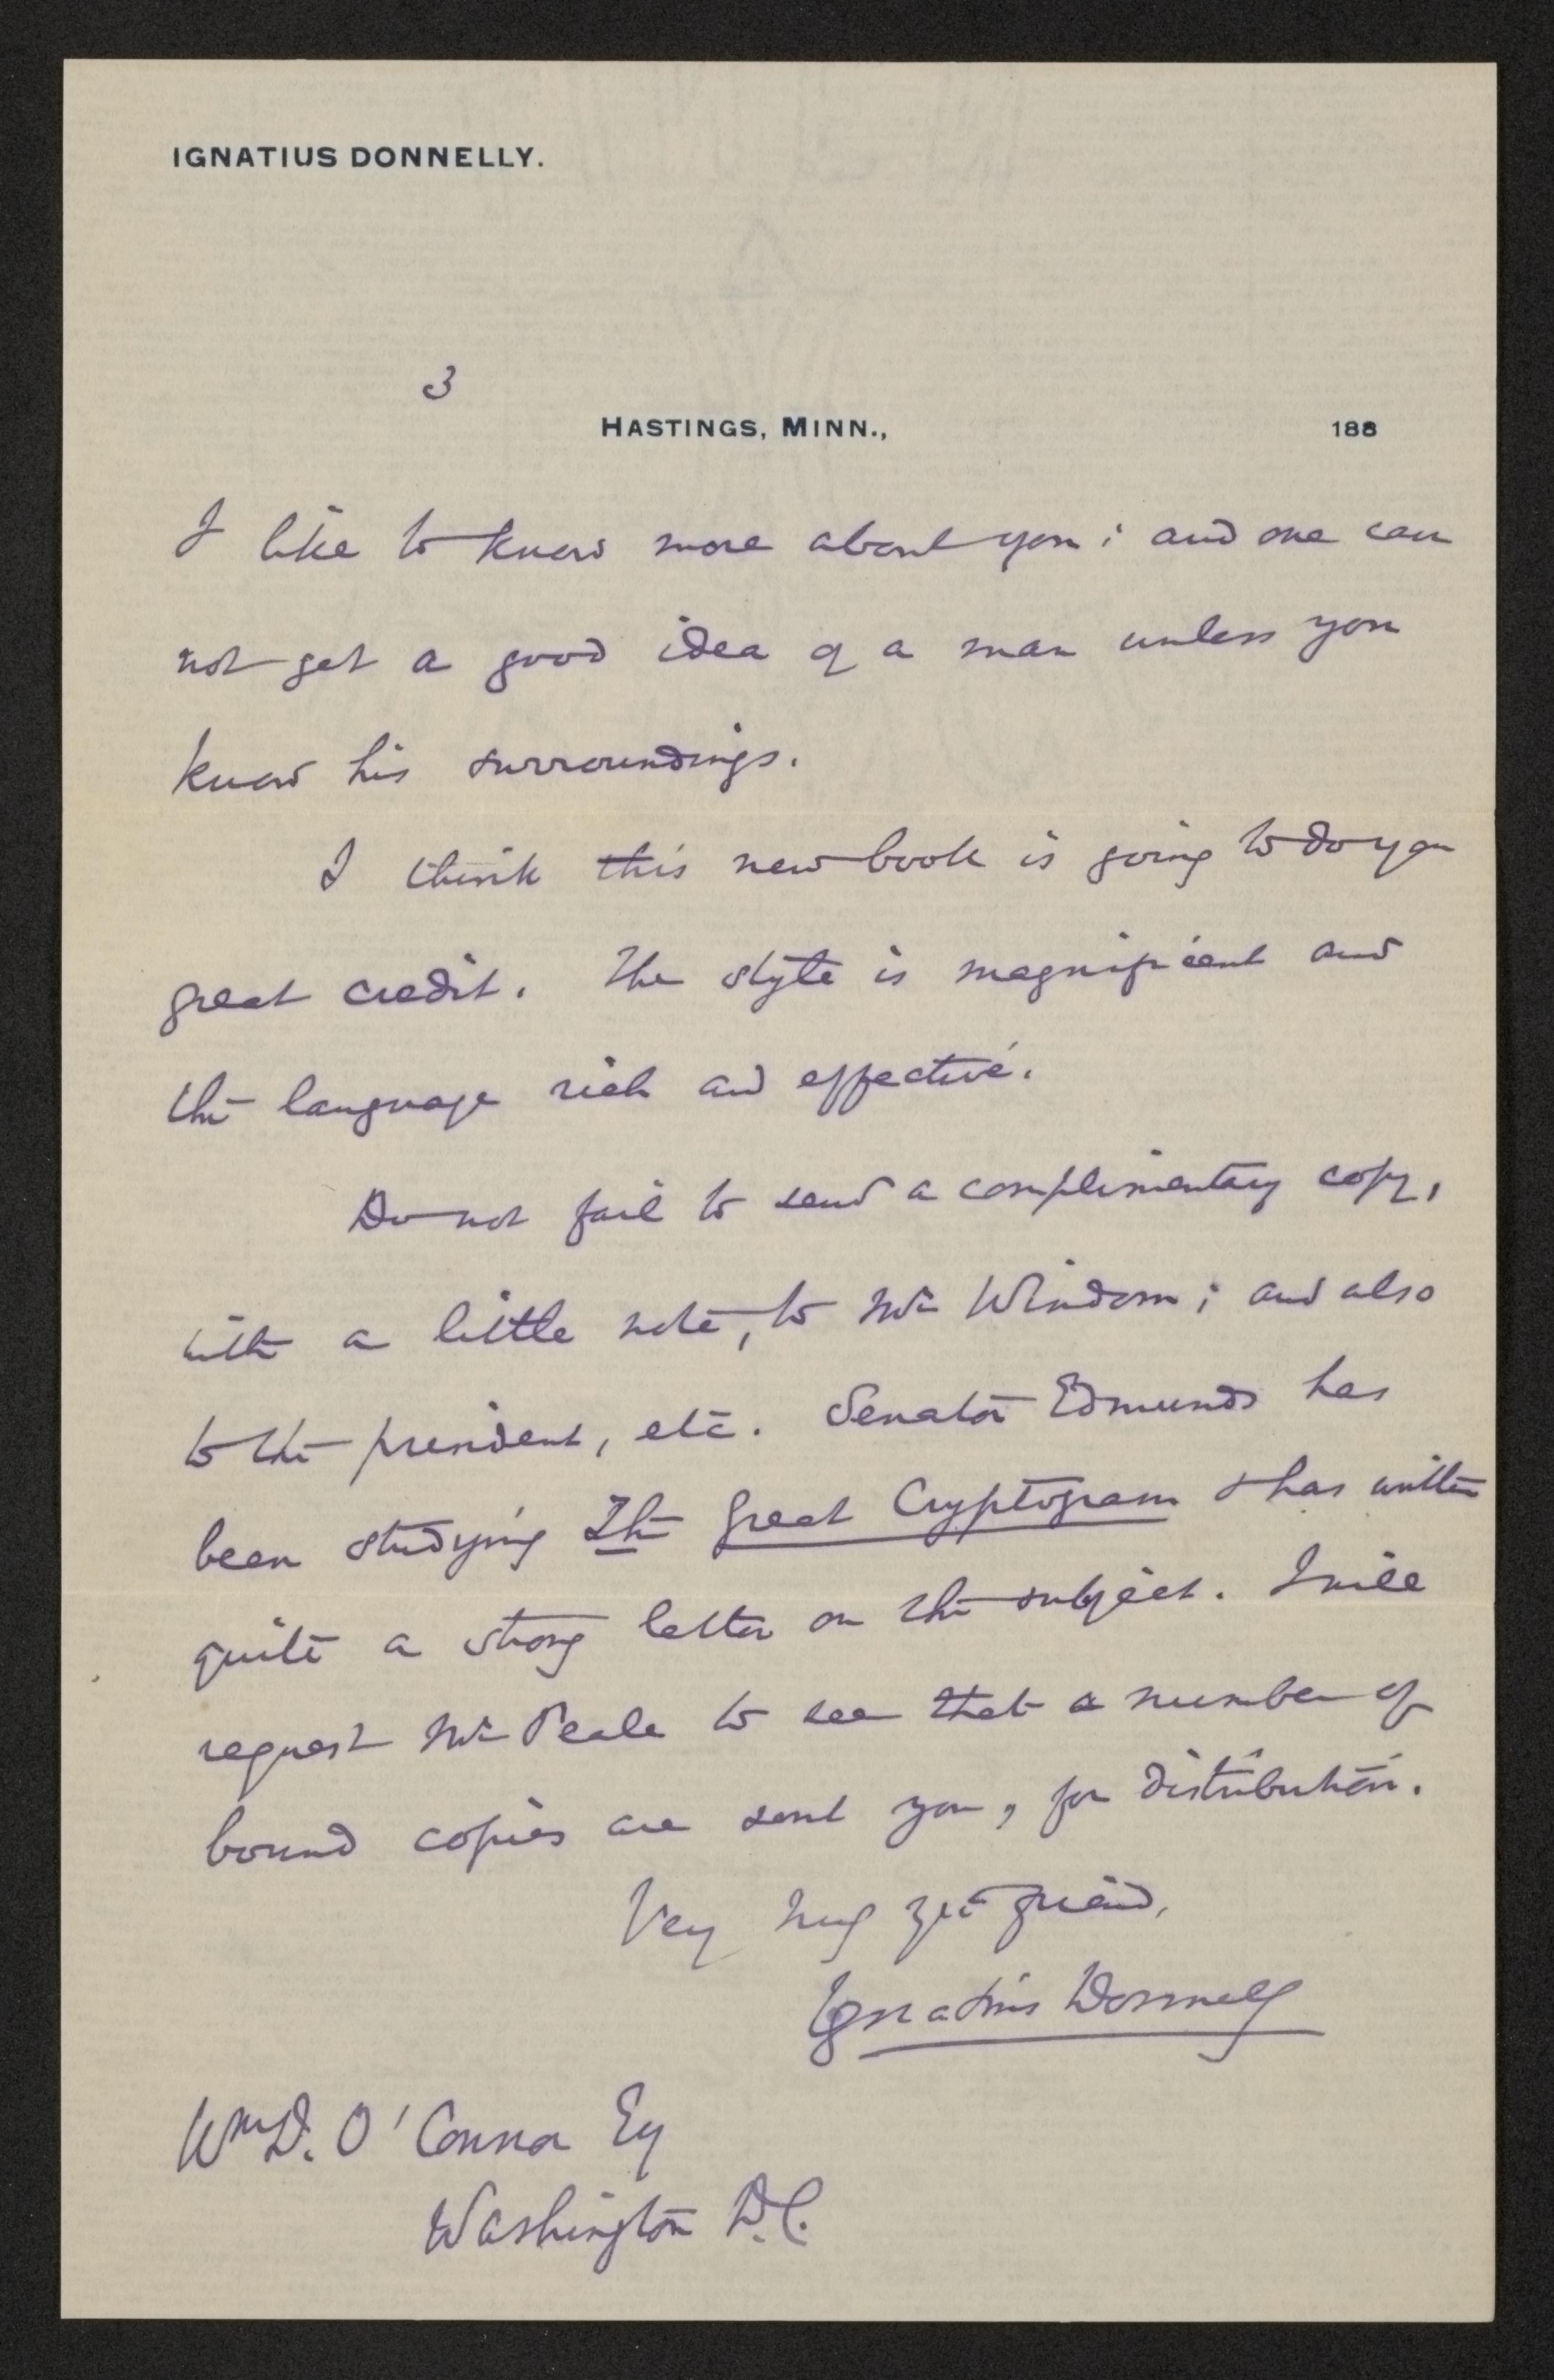 IGNATIUS DONNELLY.
3
HASTINGS, MINN., 188
I like to know more about you; and one can
not get a good idea of a man unless you
know his surroundings.
I think this new book is going to do you
great credit. The style is magnificent and
the language rich and effective.
Do not fail to send a complimentary copy,
with a little note, to Mr Windom; and also
to the president, etc. Senator Edmunds has
been studying The Great Cryptogram & has written
quite a strong letter on the subject. I will
request Mr Peale to see that a number of
bound copies are sent you, for distribution.
Very truly yr friend,
Ignatius Donnelly
Wm D. O'Connor Esq
Washington D.C.